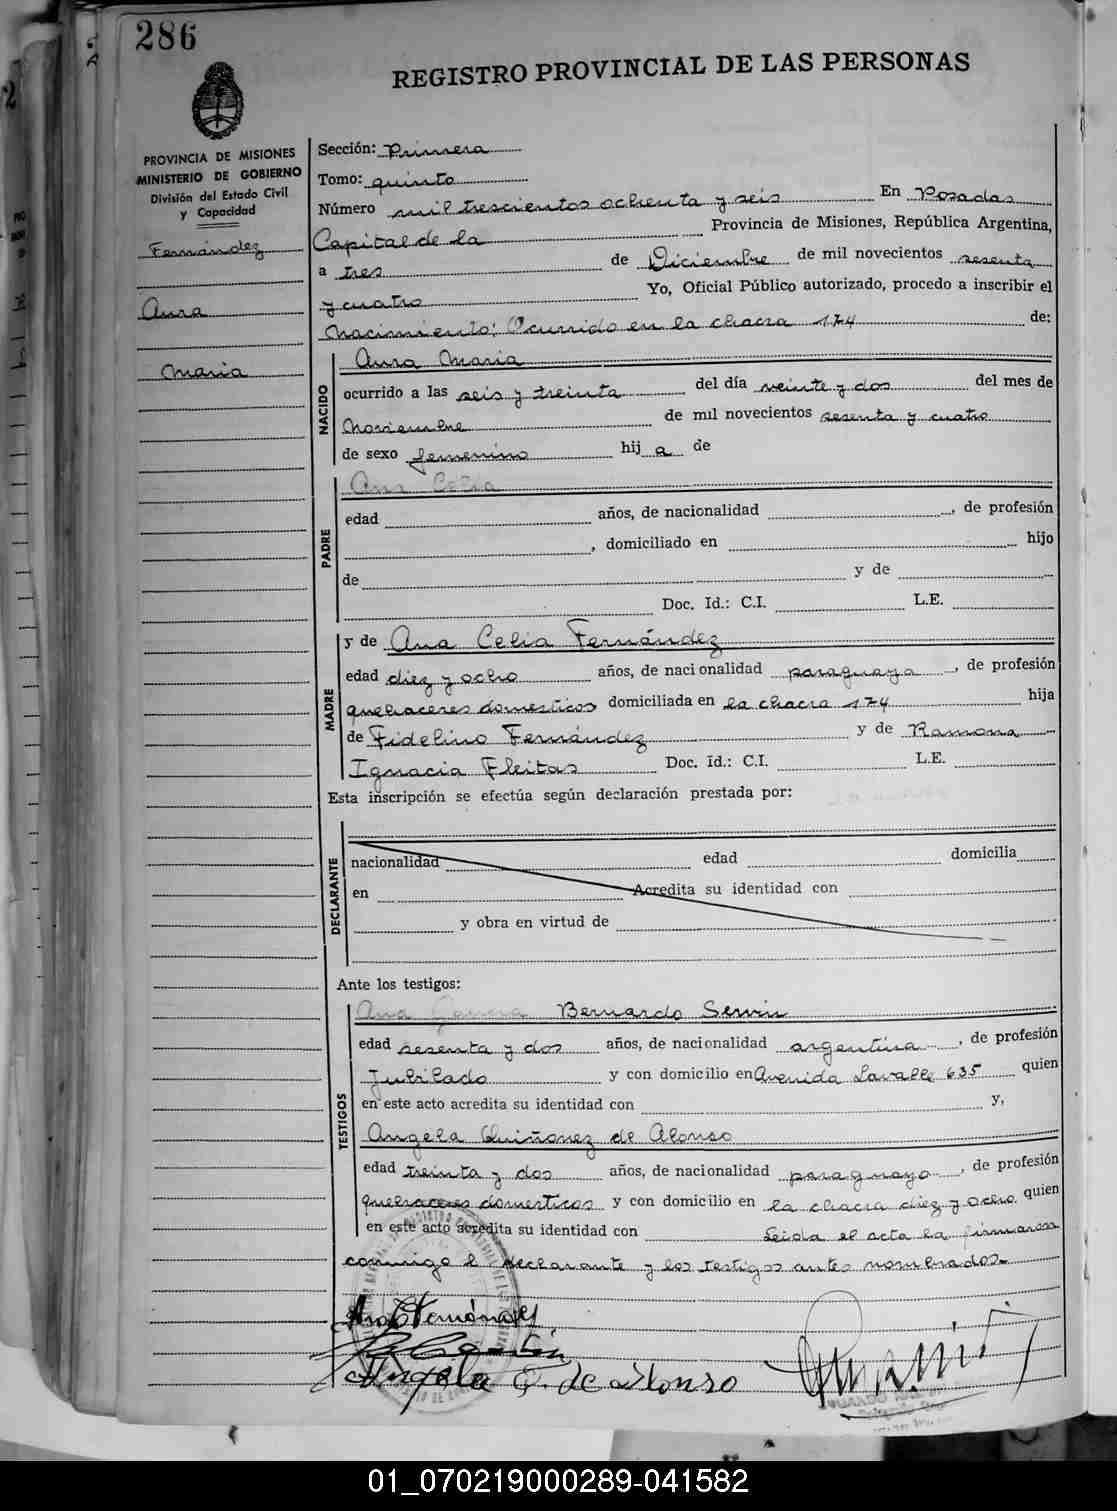 286
REGISTRO PROVINCIAL DE LAS PERSONAS
PROVINCIA DE MISIONES
MINISTERIO DE GOBIERNO
División del Estado Civil
y Capacidad
Fernández
Aura
Maria
Sección: Primera
Tomo: quinto
Número mil trescientos ochenta y seis En Posadas
Capital de la Provincia de Misiones, República Argentina,
a tres de Diciembre de mil novecientos sesenta
y cuatro Yo, Oficial Público autorizado, procedo a inscribir el
Nacimiento: Ocurrido en la chacra 174 de:
NACIDO
Aura Maria
ocurrido a las seis y treinta del día veinte y dos del mes de
Noviembre de mil novecientos sesenta y cuatro
de sexo femenino hij a de
PADRE
Ana Celia
edad años, de nacionalidad , de profesión
, domiciliado en hijo
de y de
Doc. Id.: C.I. L.E.
MADRE
y de Ana Celia Fernández
edad diez y ocho años, de nacionalidad paraguaya , de profesión
quehaceres domesticos domiciliada en la chacra 174 hija
de Fidelino Fernández y de Ramona
Ignacia Fleitas Doc. Id.: C.I. L.E.
Esta inscripción se efectúa según declaración prestada por:
DECLARANTE
nacionalidad edad domicilia
en Acredita su identidad con
y obra en virtud de
Ante los testigos:
TESTIGOS
Bernardo Servin
edad sesenta y dos años, de nacionalidad argentina , de profesión
Jubilado y con domicilio en Avenida Lavalle 635 quien
en este acto acredita su identidad con y,
Angela Quiñonez de Alonso
edad treinta y dos años, de nacionalidad paraguayo , de profesión
quehaceres domesticos y con domicilio en la chacra diez y ocho quien
en este acto acredita su identidad con Leida el acta la firmaron
conmigo el declarante y los testigos antes nombrados.
Ana C Fernández
Angela Q. de Alonso
01_070219000289-041582